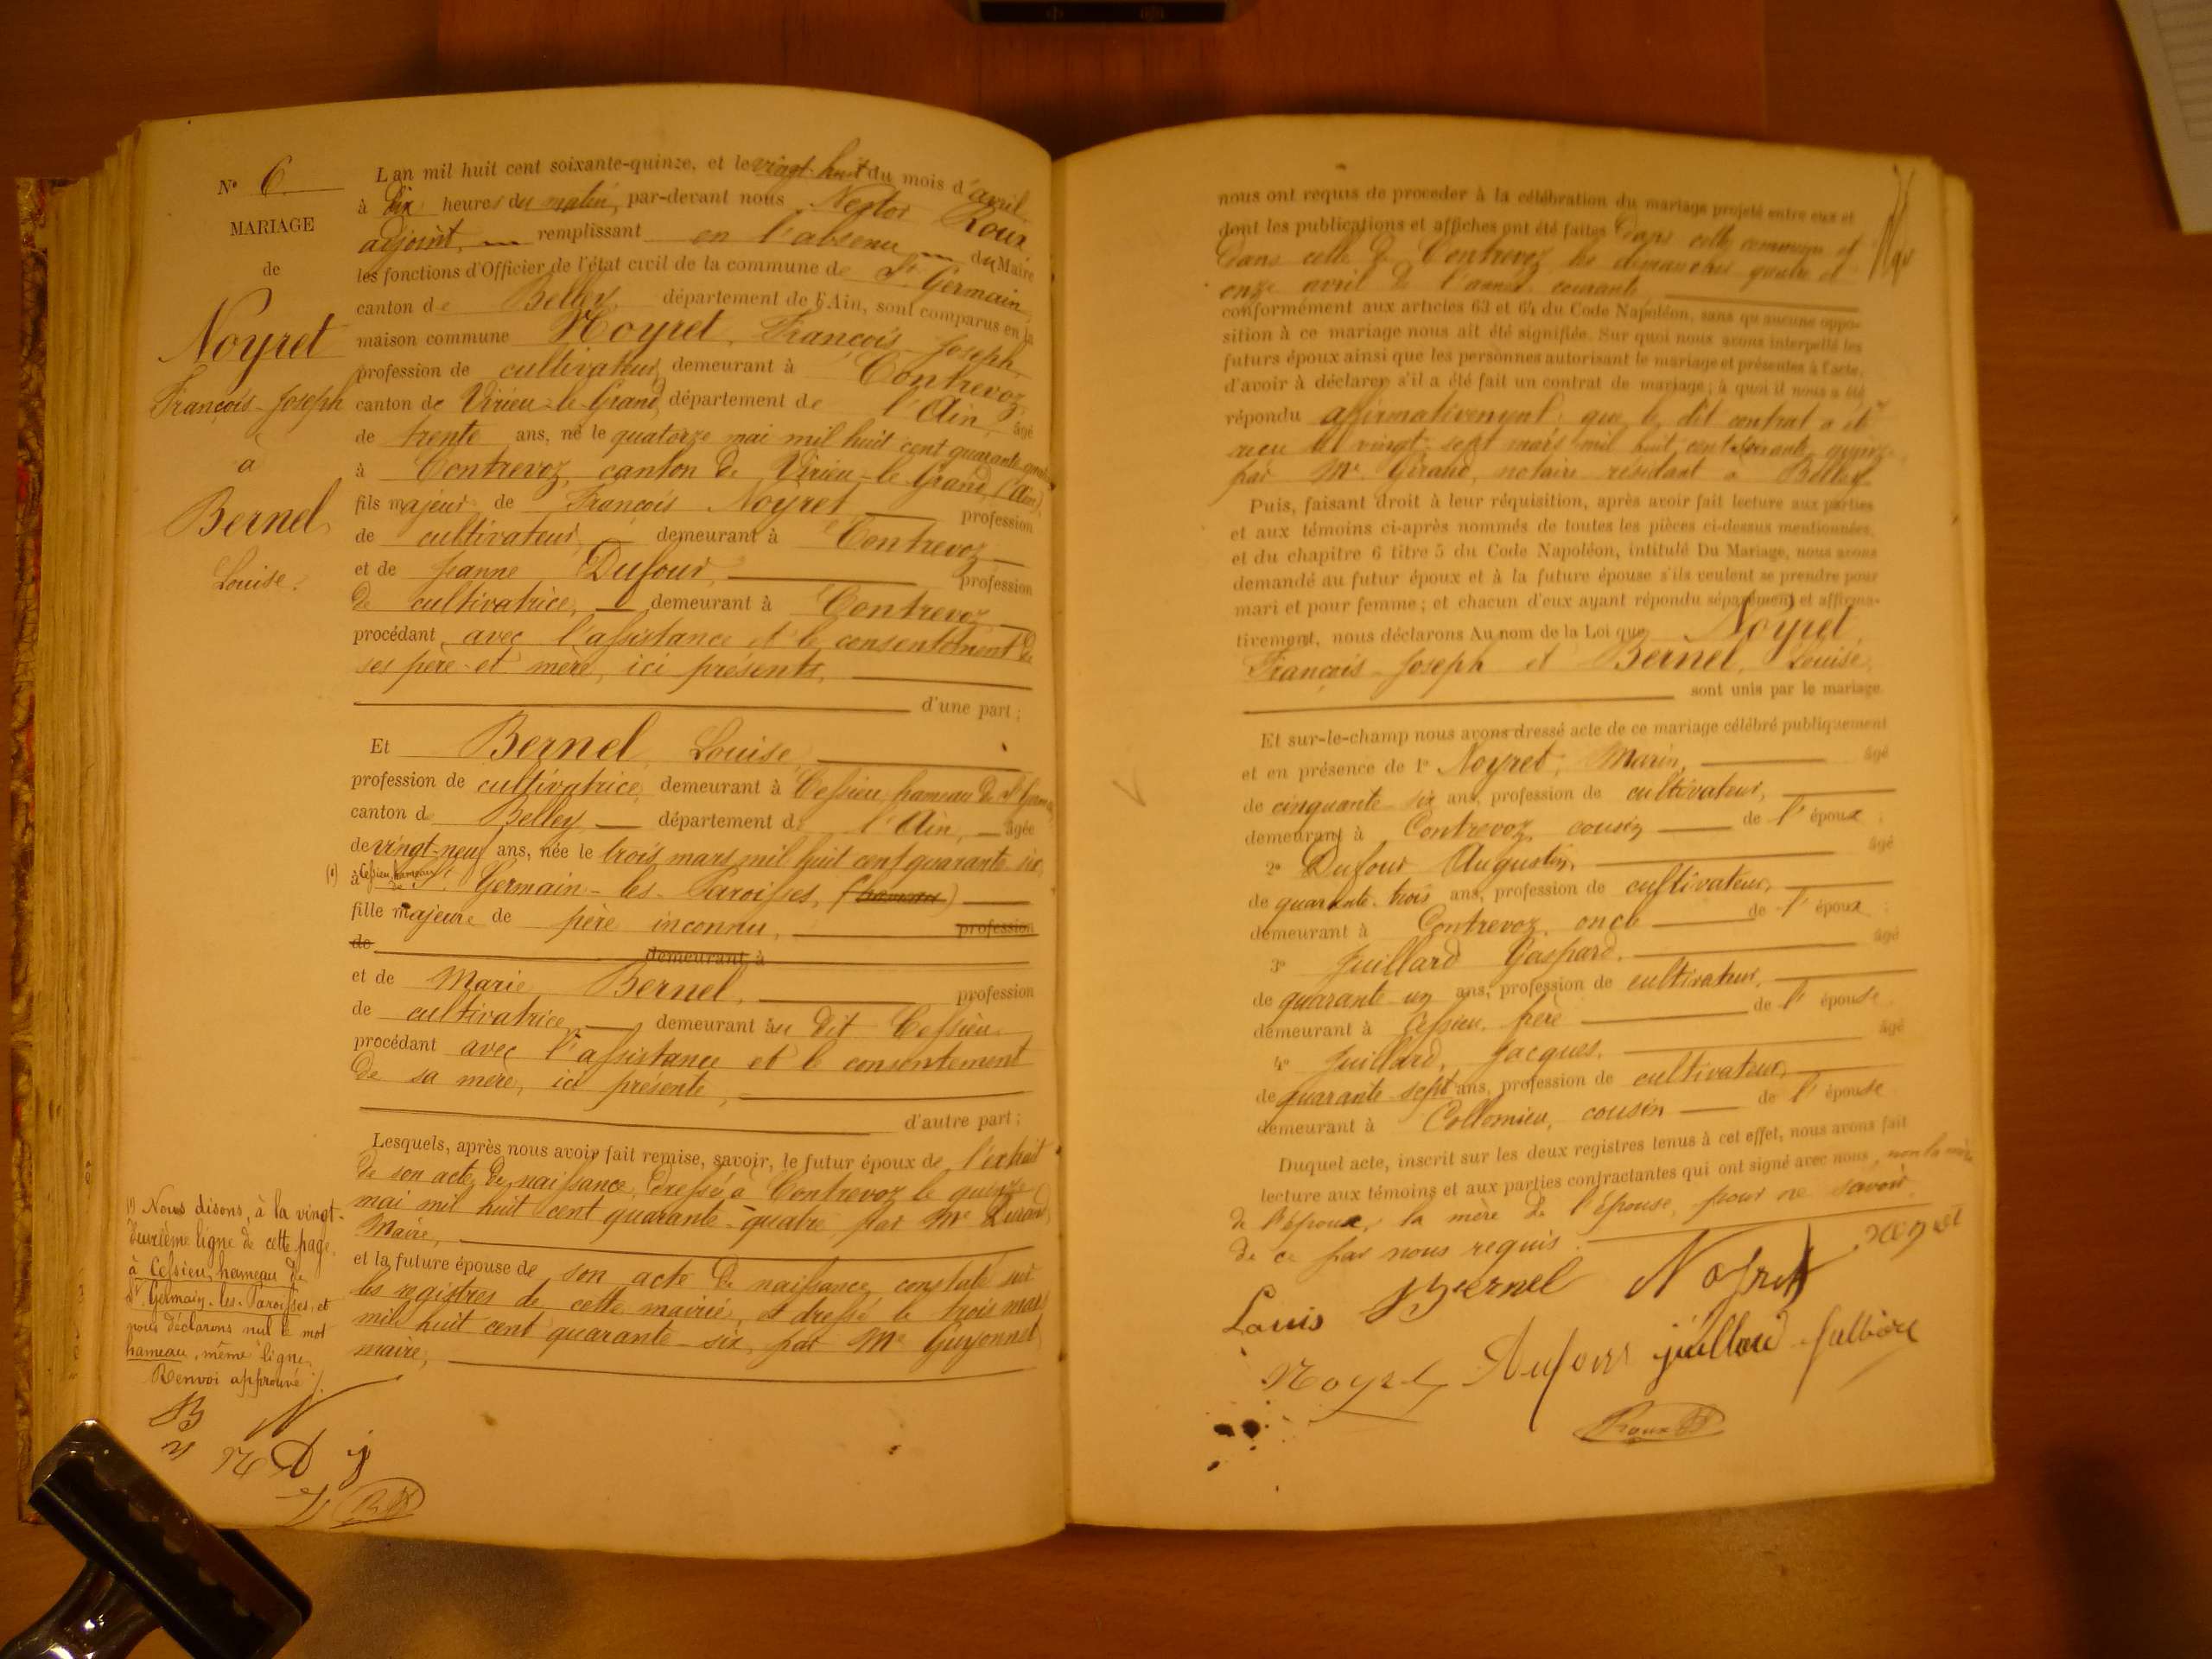 N° 6
MARIAGE
de
Noyret
François-Joseph
à
Bernel
Louise.
L'an mil huit cent soixante-quinze, et le vingt-huit du mois d'avril
à dix heures du matin, par-devant nous Nestor Roux
adjoint, remplissant en l'absence du Maire
les fonctions d'Officier de l'état civil de la commune de St Germain,
canton de Belley, département de l'Ain, sont comparus en la
maison commune Noyret, François-Joseph,
profession de cultivateur, demeurant à Contrevoz,
canton de Virieu-le-Grand, département de l'Ain, âgé
de trente ans, né le quatorze mai mil huit cent quarante-quatre
à Contrevoz, canton de Virieu-le-Grand, (Ain),
fils majeur de François Noyret profession
de cultivateur, demeurant à Contrevoz
et de Jeanne Dufour, profession
de cultivatrice, demeurant à Contrevoz
procédant avec l'assistance et le consentement de
ses père et mère, ici présents,
d'une part;
Et Bernel, Louise,
profession de cultivatrice, demeurant à Cessieu, hameau de St Germain
canton de Belley département de l'Ain, âgée
de vingt-neuf ans, née le trois mars mil huit cent quarante-six,
(1) à Cessieu, hameau de St Germain-les-Paroisses, (hameau)
fille majeure de père inconnu, profession
de demeurant à
et de Marie Bernel, profession
de cultivatrice, demeurant au dit Cessieu
procédant avec l'assistance et le consentement
de sa mère, ici présente,
d'autre part;
Lesquels, après nous avoir fait remise, savoir, le futur époux de l'extrait
de son acte de naissance, dressé à Contrevoz le quinze
mai mil huit cent quarante-quatre par Me
Maire,
et la future épouse de son acte de naissance, constaté sur
les registres de cette mairie, et dressé le trois mars
mil huit cent quarante-six, par Me Guyonnet
maire,
(1) Nous disons, à la vingt-
deuxième ligne de cette page,
à Cessieu, hameau de
St Germain-les-Paroisses, et
nous déclarons nul le mot
hameau, même ligne.
Renvoi approuvé
nous ont requis de procéder à la célébration du mariage projeté entre eux et
dont les publications et affiches ont été faites dans cette commune et
dans celle de Contrevoz les dimanches quatre et
onze avril de l'année courante
conformément aux articles 63 et 64 du Code Napoléon, sans qu'aucune oppo-
sition à ce mariage nous ait été signifiée. Sur quoi nous avons interpellé les
futurs époux ainsi que les personnes autorisant le mariage et présentes à l'acte,
d'avoir à déclarer s'il a été fait un contrat de mariage; à quoi il nous a été
répondu affirmativement, que le dit contrat a été
reçu le vingt-sept mars mil huit cent soixante-quinze
par Me Giraud, notaire résidant à Belley
Puis, faisant droit à leur réquisition, après avoir fait lecture aux parties
et aux témoins ci-après nommés de toutes les pièces ci-dessus mentionnées,
et du chapitre 6 titre 5 du Code Napoléon, intitulé Du Mariage, nous avons
demandé au futur époux et à la future épouse s'ils veulent se prendre pour
mari et pour femme; et chacun d'eux ayant répondu séparément et affirma-
tivement, nous déclarons Au nom de la Loi que Noyret,
François-Joseph et Bernel, Louise,
sont unis par le mariage.
Et sur-le-champ nous avons dressé acte de ce mariage célébré publiquement
et en présence de 1° Noyret, Marin, âgé
de cinquante-six ans, profession de cultivateur,
demeurant à Contrevoz, cousin de l'époux;
2° Dufour Augustin, âgé
de quarante-trois ans, profession de cultivateur,
demeurant à Contrevoz, oncle de l'époux;
3° Juillard Gaspard, âgé
de quarante-un ans, profession de cultivateur,
demeurant à Cessieu, père de l'épouse
4° Juillard, Jacques, âgé
de quarante-sept ans, profession de cultivateur,
demeurant à Collomieu, cousin de l'épouse
Duquel acte, inscrit sur les deux registres tenus à cet effet, nous avons fait
lecture aux témoins et aux parties contractantes qui ont signé avec nous, non la mère
de l'époux, la mère de l'épouse, pour ne savoir
de ce par nous requis.
Louis Bernel Noyret Noyret
Noyret Dufour juillard
Roux